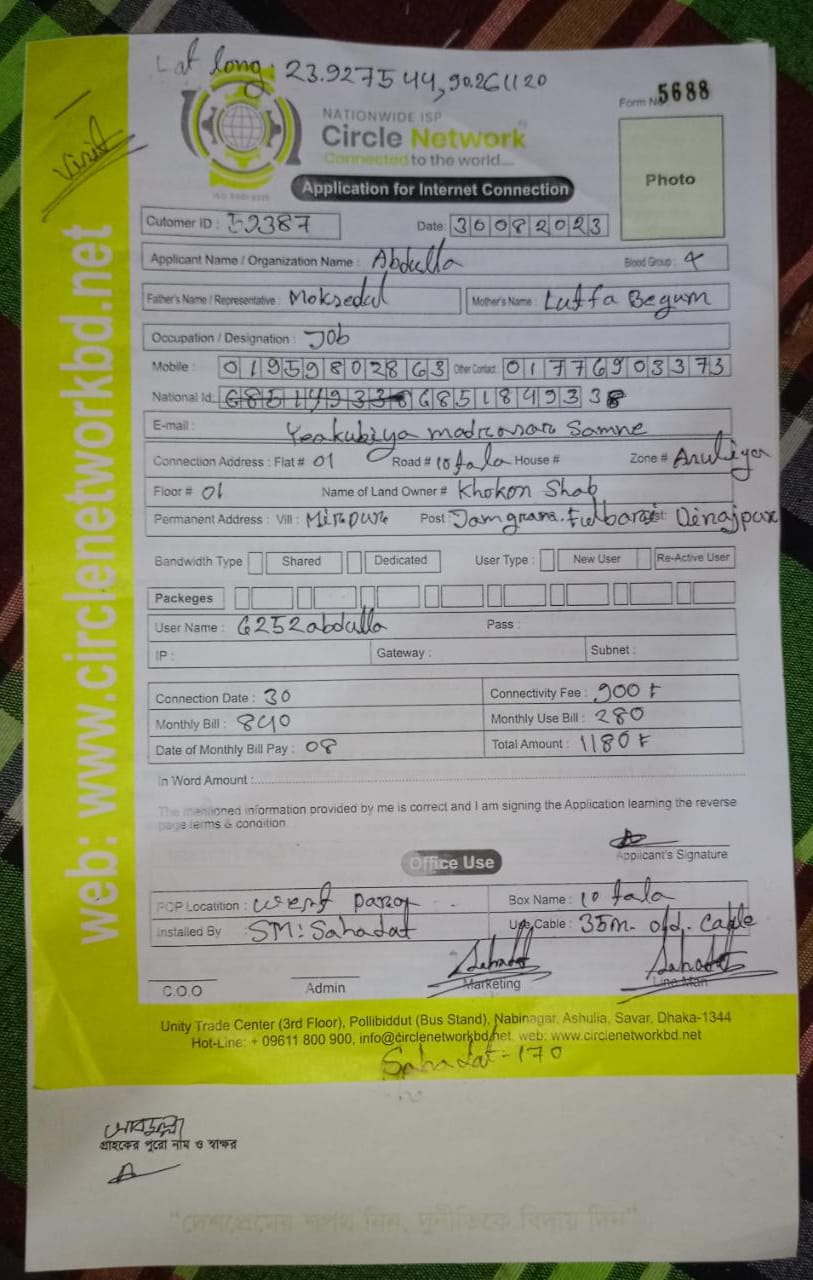 Lat long: 23.927544, 90.261120
Form No 5688
Visit
NATIONWIDE ISP
Circle Network
Connected to the world....
Photo
Application for Internet Connection
Cutomer ID : 59387 Date: 30082023
Applicant Name / Organization Name : Abdulla Blood Group :
Father's Name / Representative : Moksedul Mother's Name : Lutfa Begum
Occupation / Designation : Job
Mobile : 01959802863 Other Contact: 01776903373
National Id: 6851849338
E-mail : Yeakubiya madrasar Samne
Connection Address : Flat # 01 Road # 10 tala House # Zone # Aruliya
Floor # 01 Name of Land Owner # Khokon Shab
Permanent Address : Vill : Mirpur Post: Jamgrara. Fulbari Dist: Dinajpur
Bandwidth Type Shared Dedicated User Type : New User Re-Active User
Packeges
User Name : 6252abdulla Pass :
IP : Gateway : Subnet :
Connection Date : 30 Connectivity Fee : 900 ৳
Monthly Bill : 840 Monthly Use Bill : 280
Date of Monthly Bill Pay : 08 Total Amount : 1180 ৳
In Word Amount :
The mentioned information provided by me is correct and I am signing the Application learning the reverse
page terms & condition.
Applicant's Signature
Office Use
POP Locatition : west paraor Box Name : 10 tala
Installed By : SM: Sahadat Use Cable : 35m- old. Cable
Sahadat Sahadat
C.O.O Admin Marketing Line Man
Unity Trade Center (3rd Floor), Pollibiddut (Bus Stand), Nabinagar, Ashulia, Savar, Dhaka-1344
Hot-Line: + 09611 800 900, info@circlenetworkbd.net, web: www.circlenetworkbd.net
Sahadat-170
web: www.circlenetworkbd.net
আবদুল্লা
গ্রাহকের পুরো নাম ও স্বাক্ষর
"দেশপ্রেমের শপথ নিন, দুর্নীতিকে বিদায় দিন"